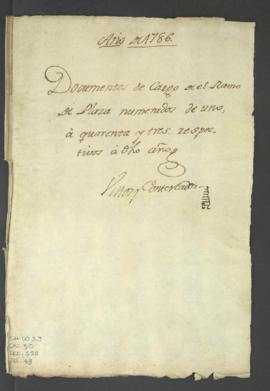 Año de 1786.
Documentos de Cargo de el Ramo
de Plaza numerados de uno,
à quarenta y tres respec
tivos à dho año